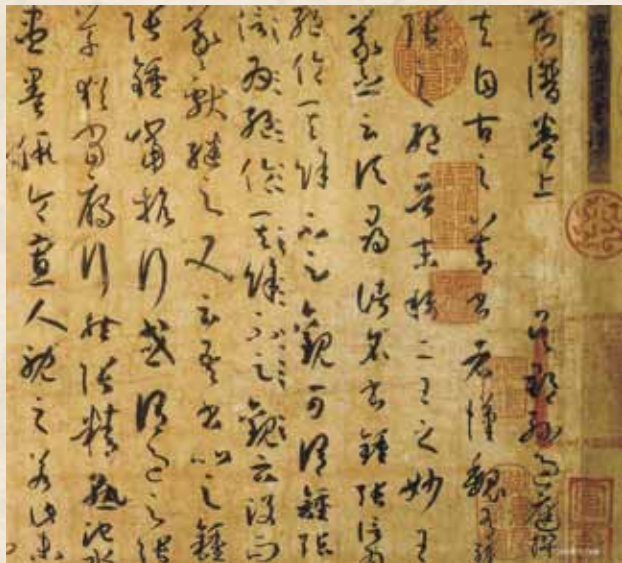 書譜卷上 吳郡孫過庭撰
夫自古之善書者漢魏有鍾
張之絕晉末稱二王之妙王
羲之云頃尋諸名書鍾張信為
絕倫其餘不足觀可謂鍾張
信為絕倫其餘不足觀云沒而
羲獻繼之又云吾書比之鍾
張鍾當抗行或謂過之張
草猶當雁行然張精熟池水
盡墨假令寡人耽之若此未